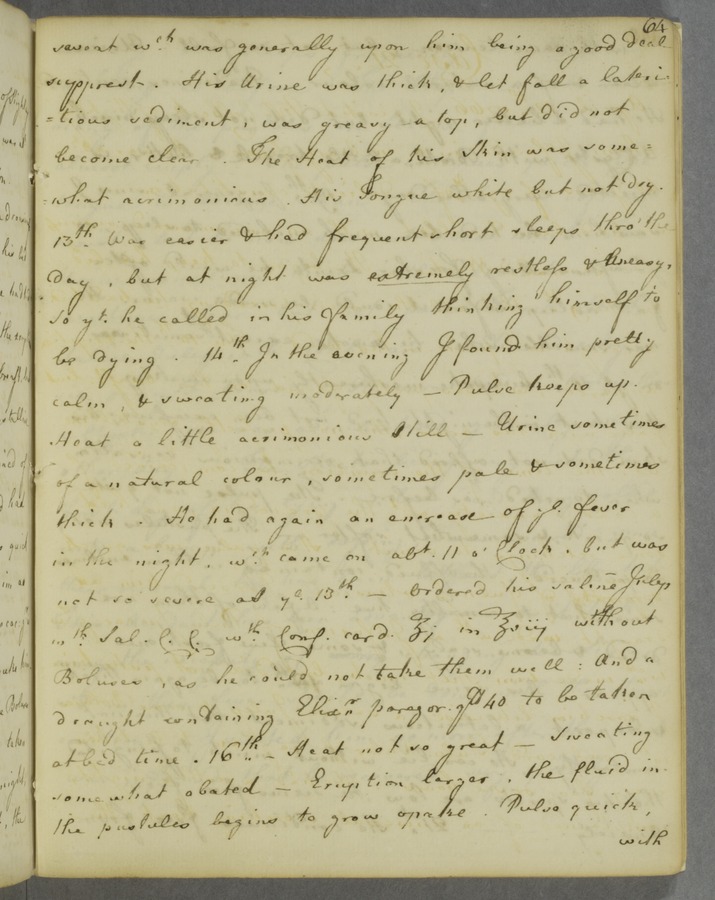 64
sweat wch. was generally upon him being a good deal
supprest. His Urine was thick, & let fall a lateri-
=tious sediment, was greasy a top, but did not
become clear. The Heat of his Skin was some=
-what acrimonious. His Tongue white but not dry.
13th. Was easier & had frequent short sleeps thro' the
day, but at night was extremely restless & Uneasy,
so yt. he called in his family thinking himself to
be dying. 14th. In the evening I found him pretty
calm, & sweating moderately – Pulse keeps up.
Heat a little acrimonious still – Urine sometimes
of a natural colour, sometimes pale & sometimes
thick. He had again an encrease of ye. fever
in the night, wch. came on abt. 11 o'Clock, but was
not so severe as ye. 13th. – Ordered his saline Julep
wth. Sal. C. C. wth. Conf. card. ʒj in ℥viij without
Boluses, as he could not take them well: And a
draught containing Elixr. paregor. gtt 40 to be taken
at bed time. 16th. – Heat not so great – Sweating
somewhat abated – Eruption larger, the fluid in
the pustules begins to grow opake. Pulse quick,
with